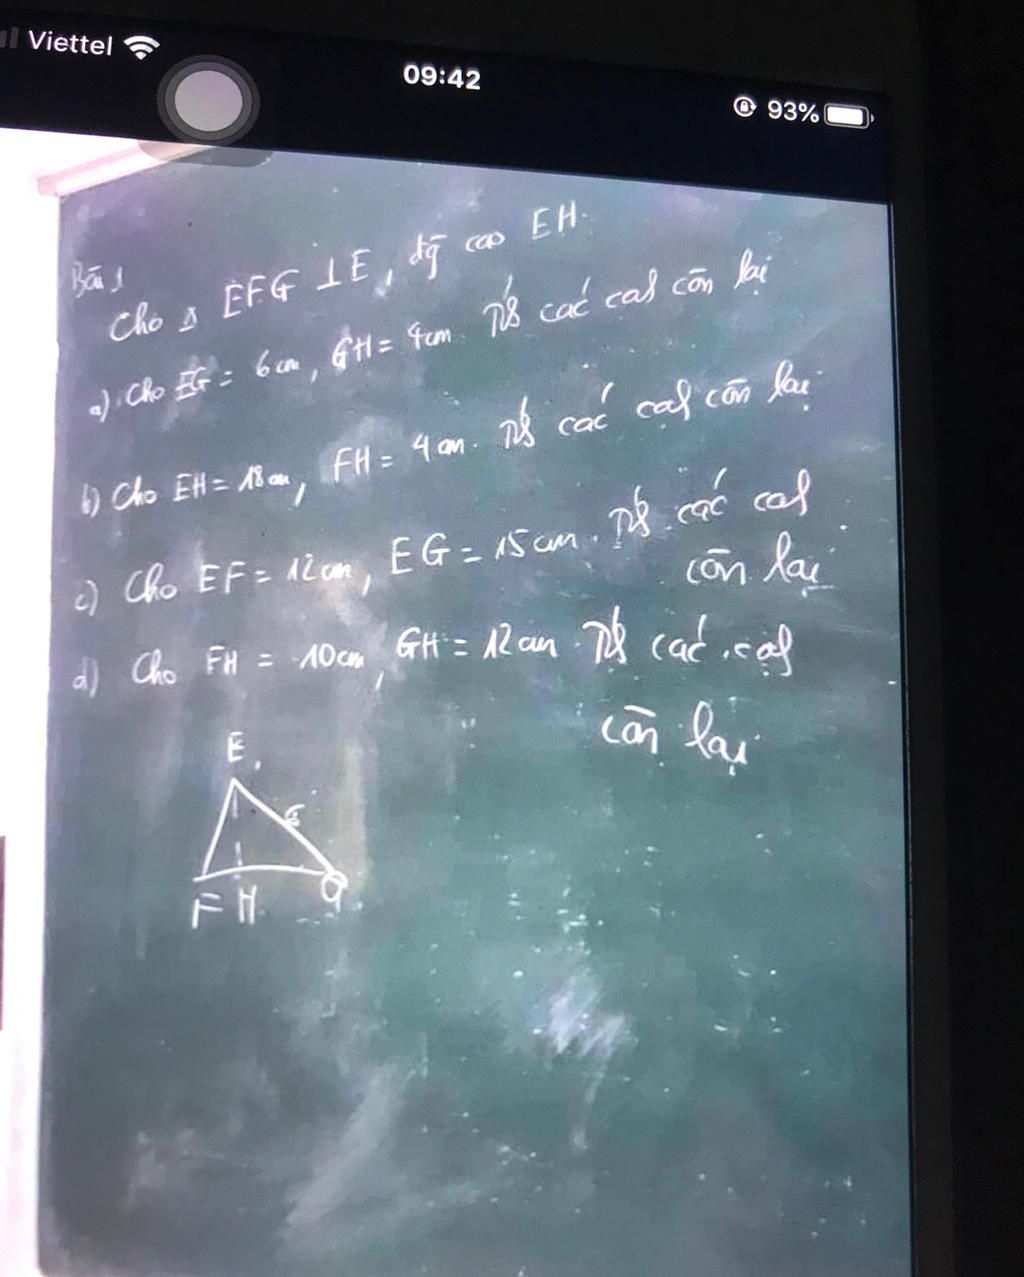 Viettel
09:42
93%
Bài 1
Cho Δ EFG ⊥ E, đg cao EH.
a) Cho EG = 6cm, GH = 4cm. Tính các cạh còn lại
b) Cho EH = 18cm, FH = 4cm. Tính các cạh còn lại
c) Cho EF = 12cm, EG = 15cm. Tính các cạh
còn lại
d) Cho FH = 10cm, GH = 12cm. Tính các cạh
còn lại
E
6
F H G